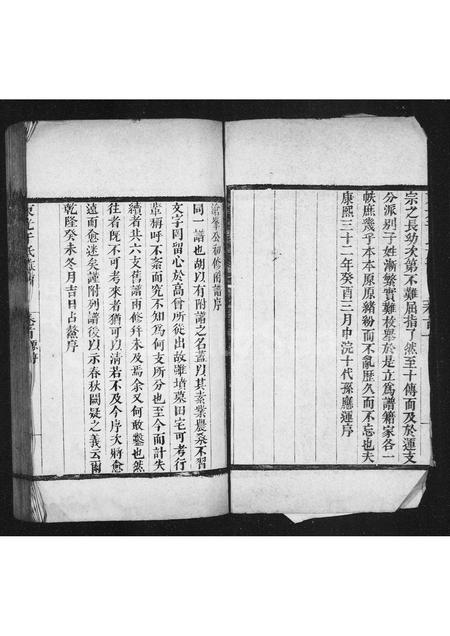 宗之長幼次第不難屈指了然至十傳而及於運支
分派別子姓漸繁實難枚舉於是立為譜籍家各一
帙庶幾乎本本原原豬粉而不亂歷久而不忘也夫
康熙三十二年癸酉三月中浣十代孫應運序
峯公初修附譜序
同一譜也胡以有附譜之名蓋以其素業農桑不習
文字罔留心於高曾所從出故雖墳墓田宅可考行
輩稱呼不紊而究不知為何支所分也至今而計失
續者共六支舊譜兩修幷未及焉余又何敢鑿也然
往者既不可考來者猶可以清若不及今序次將愈
遠而愈迷矣謹附列譜後以示春秋闕疑之義云爾
乾隆癸未冬月吉旦占鰲序